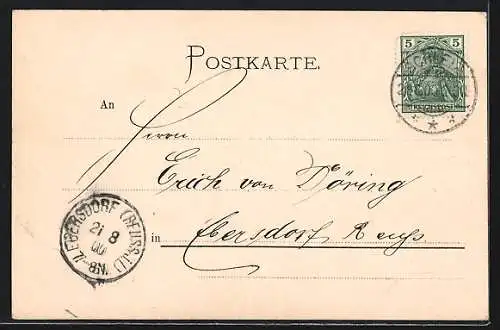 5 5
POSTKARTE.
An
Herrn
Erich von Döring
in Ebersdorf Reuß
EBERSDORF (REUSS j.L.)
21 8
00
8-9N.